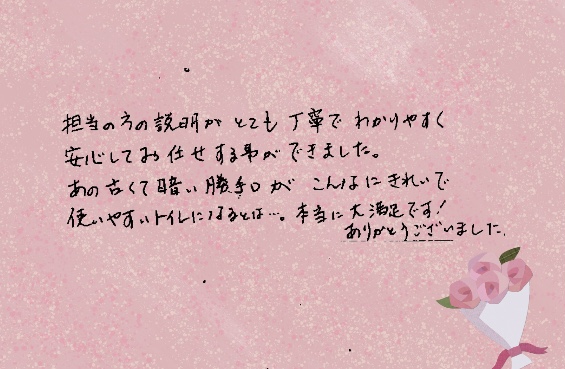 担当の方の説明がとても丁寧でわかりやすく
安心してお任せする事ができました。
あの古くて暗い勝手口が こんなにきれいで
使いやすいトイレになるとは…。本当に大満足です!
ありがとうございました。